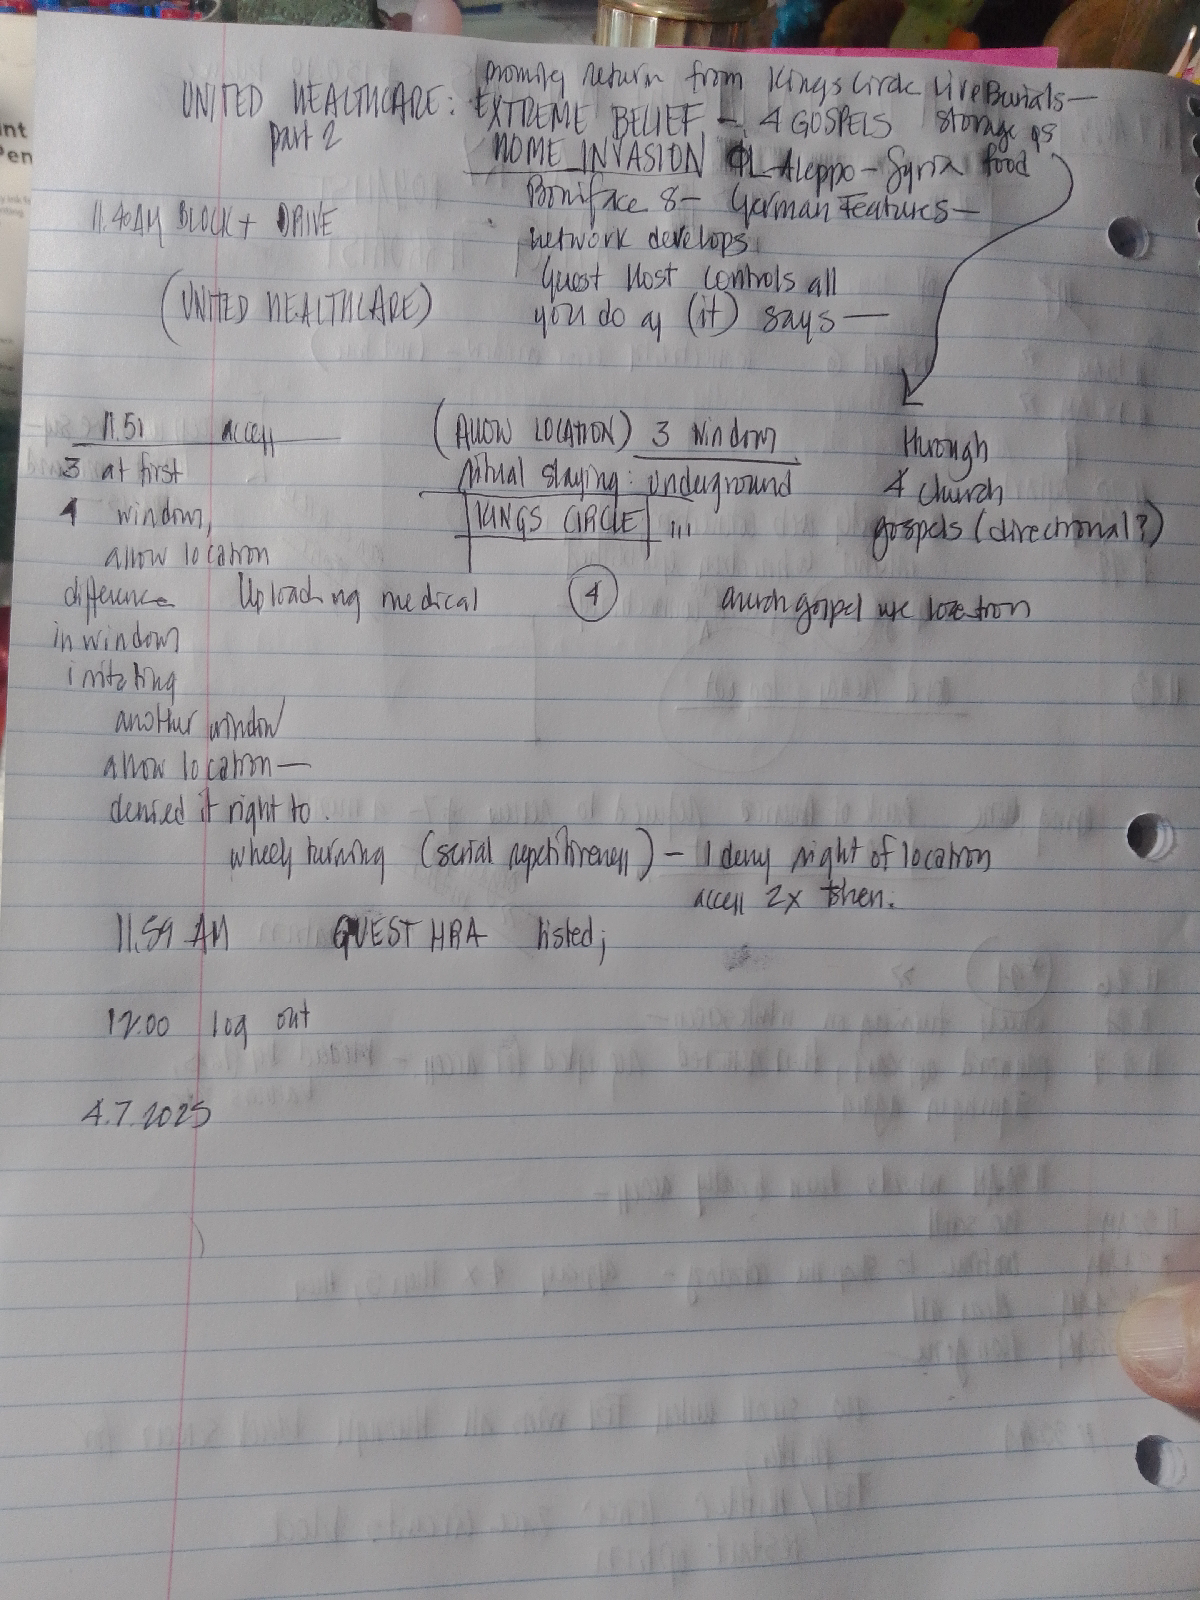 promising return from Kings Circle Live Burials—
UNITED HEALTHCARE: EXTREME BELIEF — 4 GOSPELS storage as
part 2 HOME INVASION Aleppo — Syria food
Boniface 8 — German Features —
11.40AM BLOCK + DRIVE
network develops
Guest Host controls all
(UNITED HEALTHCARE) you do as (it) says —
11.51 access (ALLOW LOCATION) 3 window through
3 at first ritual slaying: underground 4 church
4 window, KINGS CIRCLE iii gospels (directional?)
allow location
difference Uploading medical 4 church gospel use location
in window
imitating
another window
allow location —
denied it right to.
wheels turning (serial repetitiveness) — I deny right of location
access 2x then.
11.59 AM QUEST HRA listed;
12.00 log out
4.7.2025
int
Pen